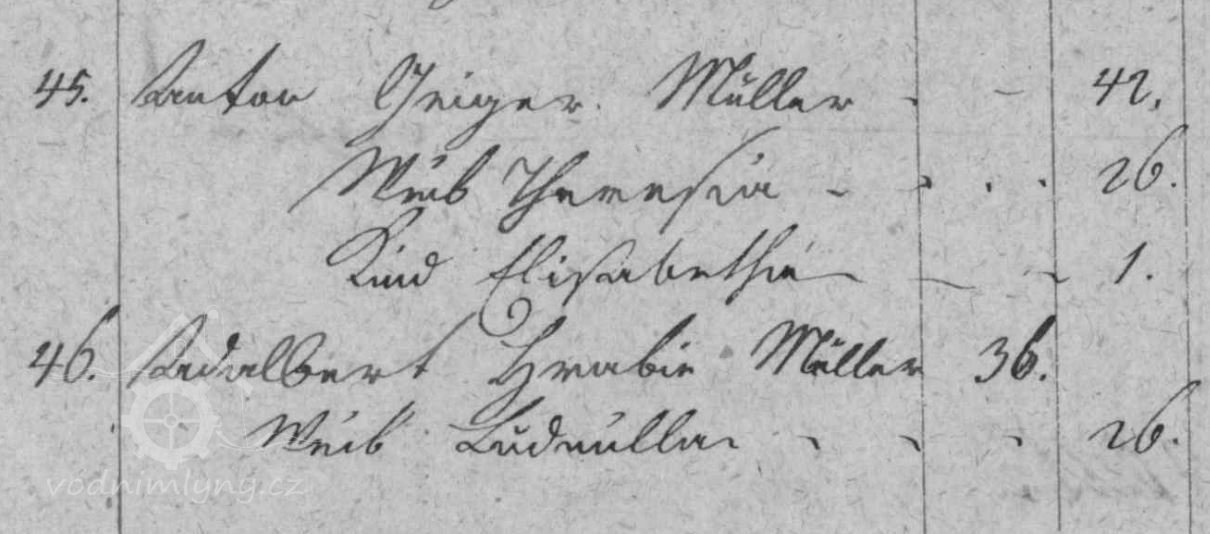 45. Anton Geiger Müller - - 42.
Weib Theresia - - - - 26.
Kind Elisabetha - - 1.
46. Adalbert Hrabie Müller 36.
Weib Ludmilla - - - 26.
vodnimlyny.cz